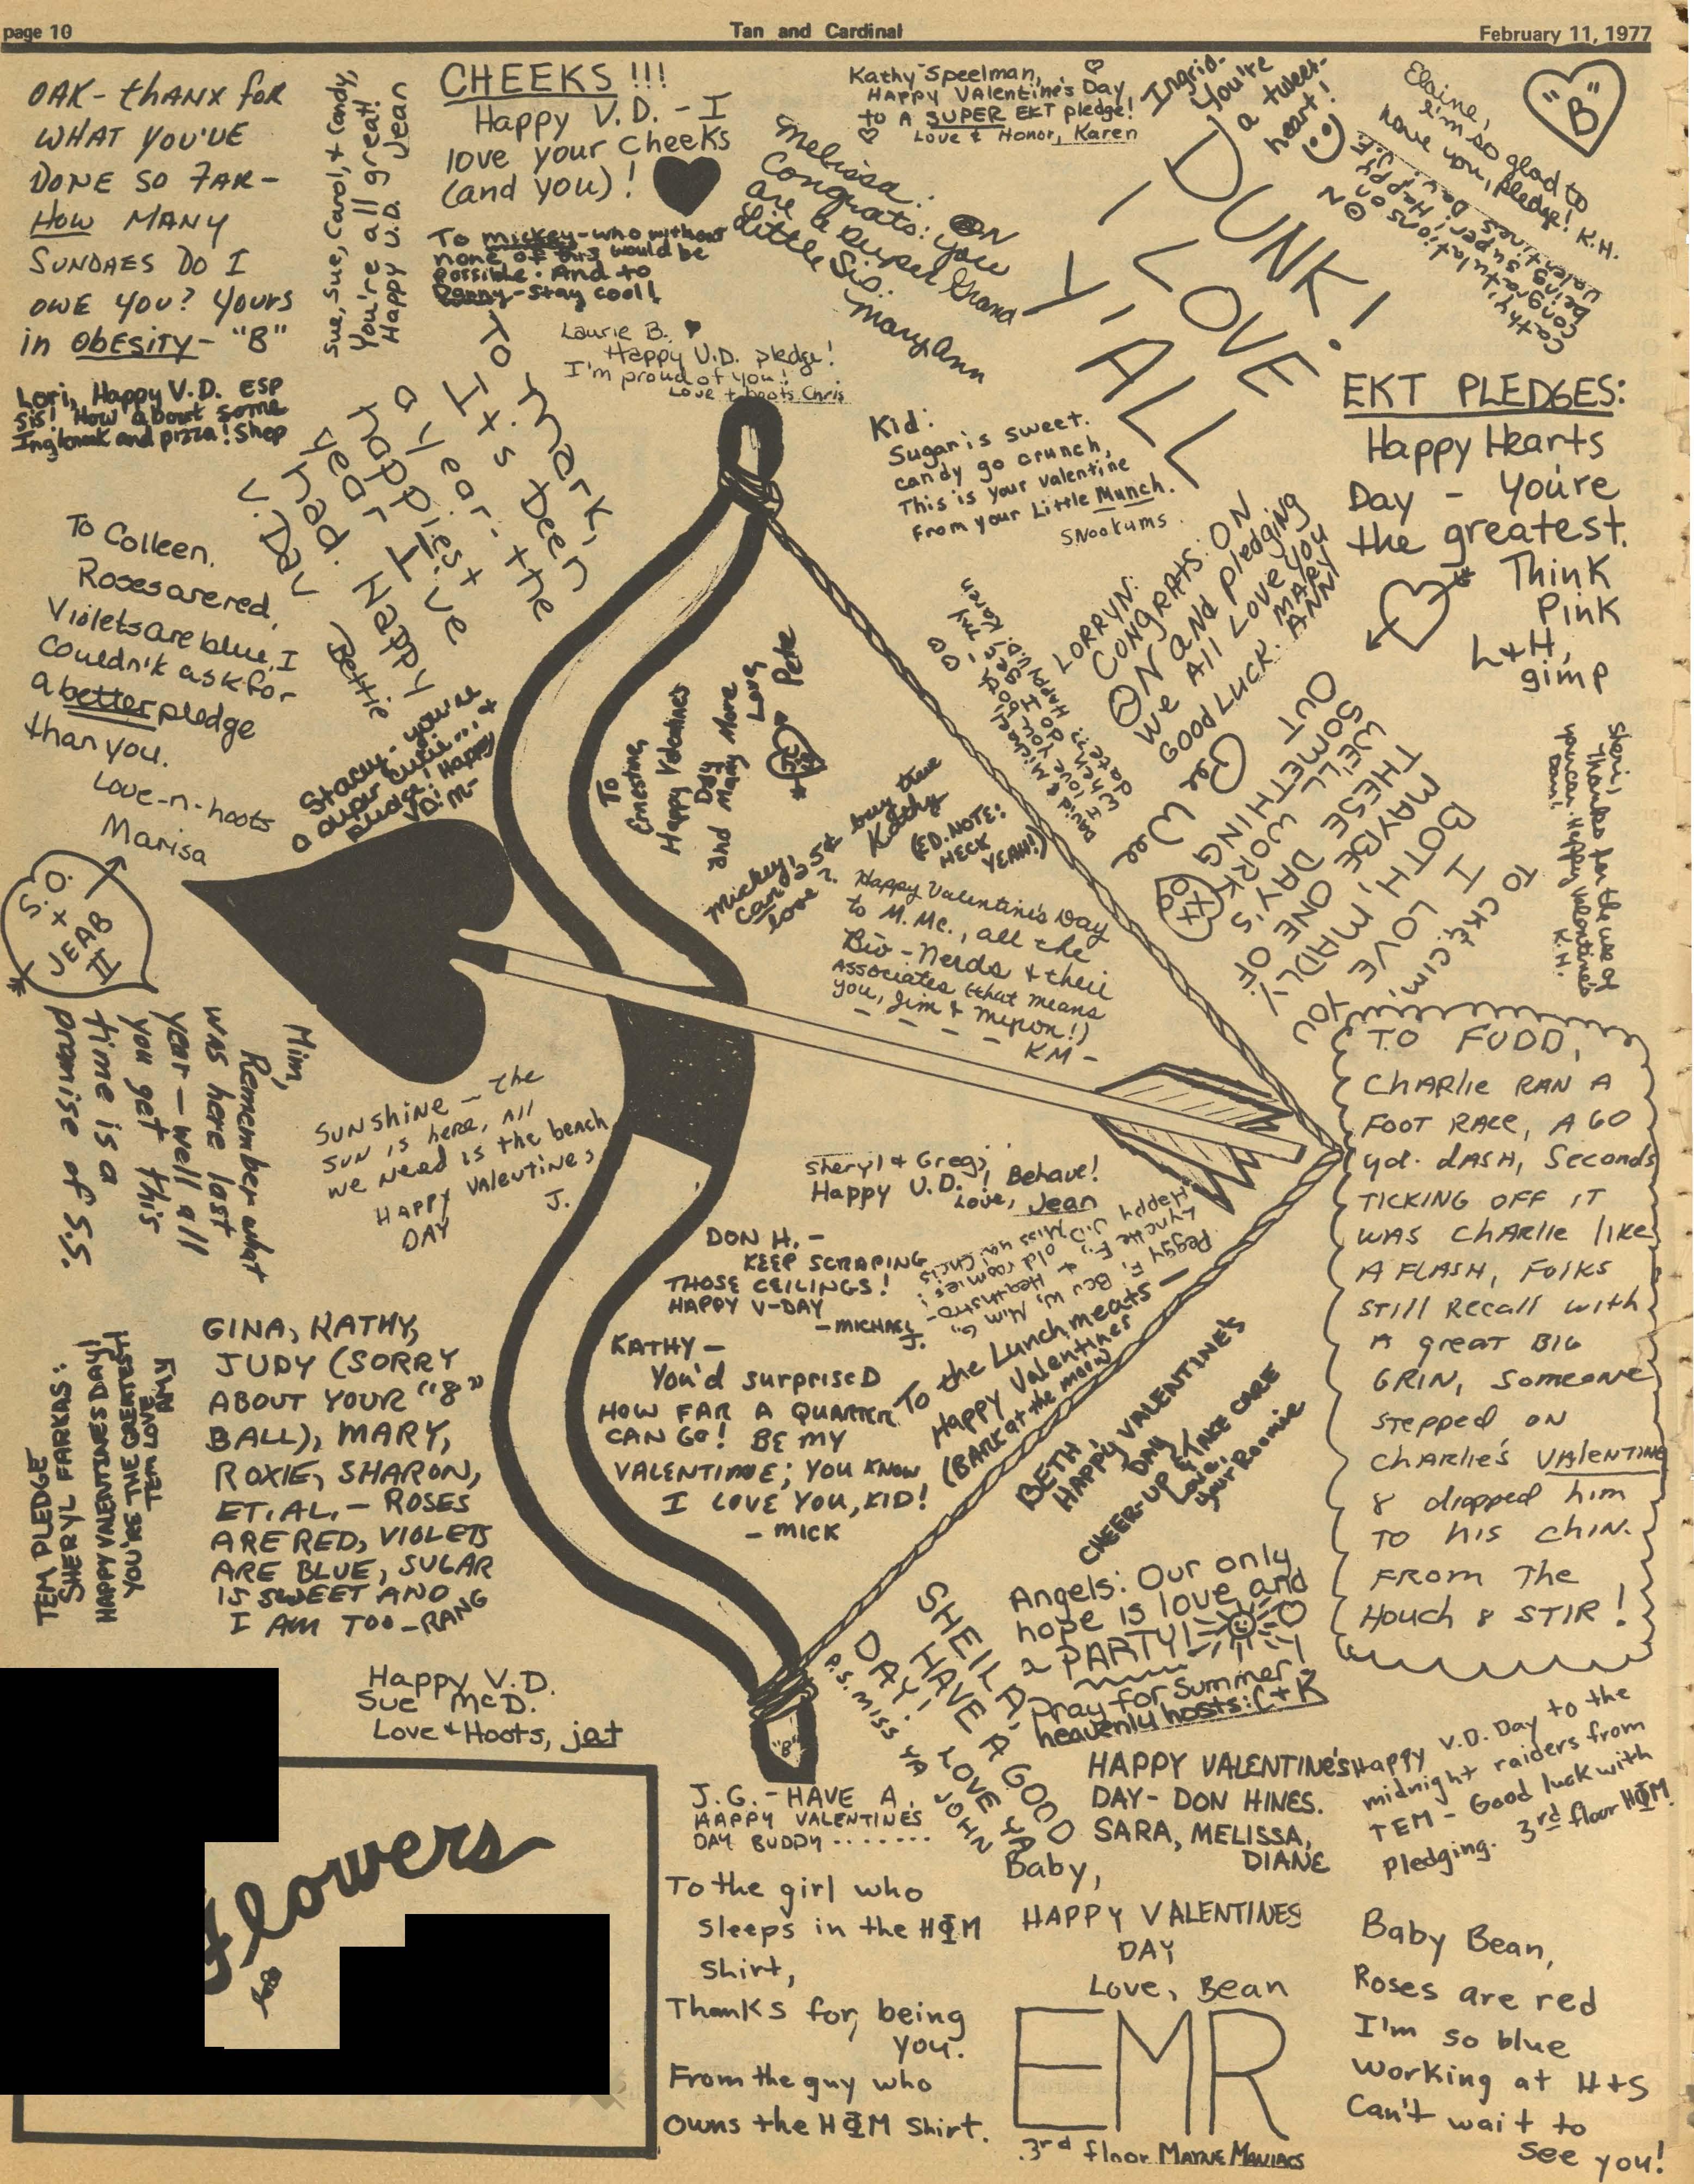 page 10
Tan and Cardinal
February 11, 1977
OAK - thANX for
WHAT YOU'VE
DONE SO FAR -
HOW MANY
SUNDAES DO I
OWE YOU? YOURS
in ObESITY - "B"
Sue, Sue, Carol, + Candy,
You're all great!
Happy V.D. Jean
CHEEKS !!!
Happy V.D. - I
love your cheeks
(and you)!
To mickey - who without
none of this would be
possible. And to
Danny - Stay cool!
Kathy Speelman,
HAPPY VAlentine's Day
to A SUPER EKT pledge!
Love & Honor, Karen
Melissa:
Congrats: you
are a super Grand
Little Sis.
Mary Ann
Ingrid-
You're
a tweet-
heart!
DUNK!
I LOVE
Y'ALL
Elaine,
I'm so glad to
have you, pledge! K.H.
"B"
Cathy,
Congratulations on
being super! Happy
Valentines Day! J.E.
Laurie B.
Happy V.D. pledge!
I'm proud of you!
Love + hoots Chris
Lori, Happy V.D. ESP
Sis! How about some
Inglenook and pizza! Shep
TO Mark,
It's been
a year - the
happiest
year I've
had. Happy
V. Day
Bettie
Kid:
Sugar is sweet.
candy go crunch,
This is your valentine
From your Little Munch.
SNookums.
EKT PLEDGES:
Happy Hearts
Day - You're
the greatest.
Think
Pink
L+H,
gimp
To Colleen,
Roses are red,
Violets are blue, I
Couldn't ask for
a better pledge
than you.
Love-n-hoots
Marisa
Stacy - you're
a super cutie... +
pledge! Happy
VD! M-
LORRYN:
CONGRATS: ON
ON and pledging
We All Love you
GOOD LUCK. MARY
ANN
To
Ernestine,
Happy Valentine's
Day
and Many More
Love,
Pete
Mickey,
Can 25¢ buy true
love?
Kathy
(ED. NOTE:
HECK
YEAH!)
TO CK & CIM,
I LOVE YOU
BOTH, MADLY.
MAYBE, ONE OF
THESE DAY'S
WE'LL WORK
SOMETHING
OUT
Pee Wee
Sheri,
Thanks for the use of
your can. Happy Valentine's
K.H.
S.O.
+
JEAB
II
Happy Valentine's Day
to M. Mc., all the
Bio-Nerds + their
Associates (that means
you, Jim & Myron!)
- KM -
Mim,
Remember what
was here last
year - well all
you get this
time is a
promise of S.S.
SUNSHINE - the
SUN is here, All
we need is the beach
HAPPY Valentines
DAY
J.
Sheryl & Greg,
Happy V.D.! Behave!
Love, Jean
DON H. -
KEEP SCRAPING
THOSE CEILINGS!
HAPPY V-DAY
- MICHAEL J.
KATHY -
You'd surpriseD
HOW FAR A QUARTER
CAN GO! BE MY
VALENTINE; YOU KNOW
I LOVE YOU, KID!
- MICK
To the Lunchmeats -
Happy Valentines
(BARK at the moon)
BETH,
HAPPY VALENTINE'S
DAY
CHEER-UP & TAKE CARE
Love,
your Roomie
TO FUDD,
CHARlie RAN A
FOOT RACE, A 60
yd. dASH, Seconds
TICKING OFF IT
WAS CHArlie like
A FLASH, FOlKS
STill Recall with
A great BIG
GRIN, Someone
Stepped ON
CHArlie's VAlENTINE
& dropped him
TO his chin.
FROM The
HOUCH & STIR!
TEM PLEDGE
SHERYL FARKAS:
HAPPY VALENTINES DAY!
YOU'RE THE GREATEST!
TEM LOVE
AMY
GINA, KATHY,
JUDY (SORRY
ABOUT YOUR "8"
BALL), MARY,
ROXIE, SHARON,
ET. AL. - ROSES
ARE RED, VIOLETS
ARE BLUE, SUGAR
IS SWEET AND
I AM TOO - RANG
Angels: Our only
hope is love and
a PARTY!
Pray for Summer!
heavenly hosts: C + K
SHEILD,
HAVE A GOOD
DAY! LOVE YA
P.S. MISS YA JOHN
Happy V.D.
Sue McD.
Love & Hoots, jat
"B"
J.G. - HAVE A
HAPPY VALENTINES
DAY BUDDY .......
HAPPY VALENTINe's
DAY - DON HINES.
SARA, MELISSA,
DIANE
Happy V.D. Day to the
midnight raiders from
TEM - Good luck with
pledging. 3rd floor HΦM
Flowers
To the girl who
Sleeps in the HΦM
Shirt,
Thanks for being
you.
From the guy who
Owns the HΦM Shirt.
Baby,
HAPPY VALENTINES
DAY
Love, Bean
EMR
3rd floor MAYNE MANIACS
Baby Bean,
Roses are red
I'm so blue
Working at H+S
Can't wait to
see you!